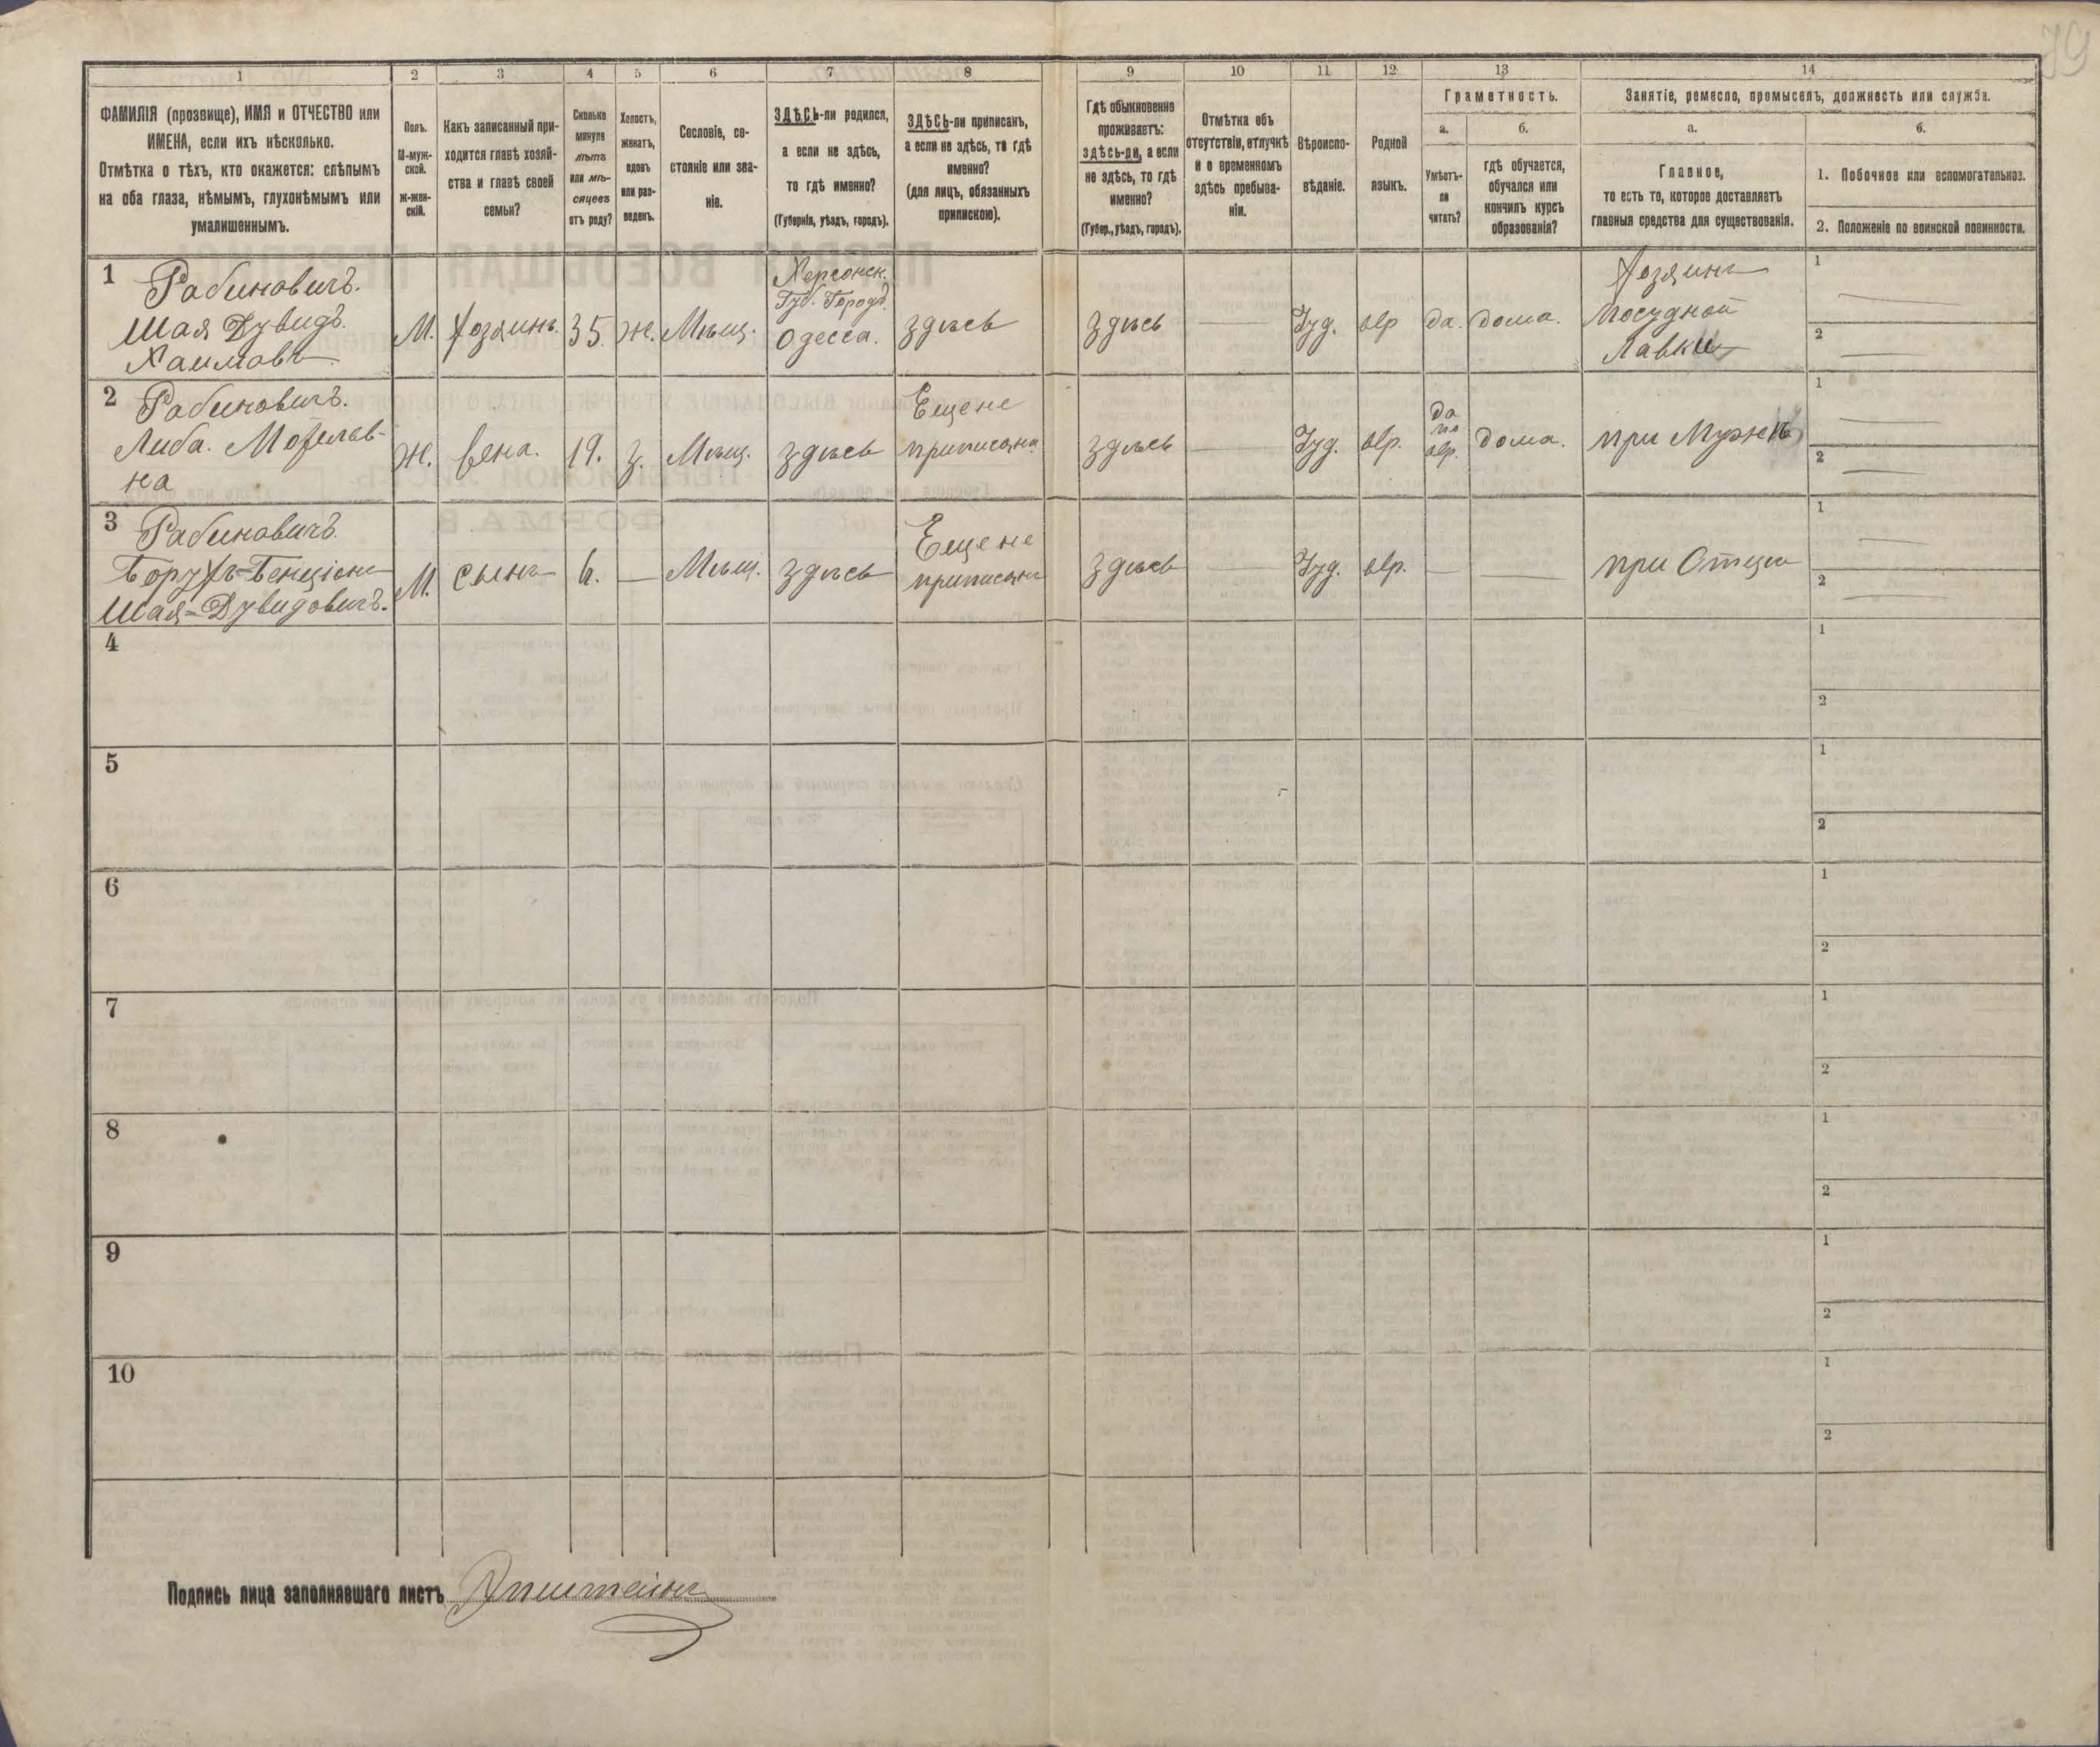 79
1 2 3 4 5 6 7 8 9 10 11 12 13 14
ФАМИЛІЯ (прозвище), ИМЯ и ОТЧЕСТВО или
ИМЕНА, если ихъ нѣсколько.
Отмѣтка о тѣхъ, кто окажется: слѣпымъ
на оба глаза, нѣмымъ, глухонѣмымъ или
умалишеннымъ.
Полъ.
М-муж-
ской.
ж-жен-
скій.
Какъ записанный при-
ходится главѣ хозяй-
ства и главѣ своей
семьи?
Сколько
минуло
лѣтъ
или мѣ-
сяцевъ
отъ роду?
Холостъ,
женатъ,
вдовъ
или раз-
веденъ.
Сословіе, со-
стояніе или зва-
ніе.
ЗДѢСЬ-ли родился,
а если не здѣсь,
то гдѣ именно?
(Губернія, уѣздъ, городъ).
ЗДѢСЬ-ли приписанъ,
а если не здѣсь, то гдѣ
именно?
(для лицъ, обязанныхъ
припискою).
Гдѣ обыкновенно
проживаетъ:
здѣсь-ли, а если
не здѣсь, то гдѣ
именно?
(Губер., уѣздъ, городъ).
Отмѣтка объ
отсутствіи, отлучкѣ
и о временномъ
здѣсь пребыва-
ніи.
Вѣроиспо-
вѣданіе.
Родной
языкъ.
Грамотность.
а.
Умѣетъ-
ли
читать?
б.
гдѣ обучается,
обучался или
кончилъ курсъ
образованія?
Занятіе, ремесло, промыселъ, должность или служба.
а.
Главное,
то есть то, которое доставляетъ
главныя средства для существованія.
б.
1. Побочное или вспомогательное.
2. Положеніе по воинской повинности.
1 Рабиновичъ.
Шая Дувидъ.
Хаимовъ
М.
Хозяинъ.
35.
Ж.
Мѣщ.
Херсонск.
Губ. Городъ
Одесса.
здѣсь
здѣсь
—
Іуд.
евр
да.
дома.
Хозяинъ
Посудной
Лавки
1 —
2 —
2 Рабиновичъ.
Либа. Мофелев-
на
Ж.
Жена.
19.
З.
Мѣщ.
здѣсь
Еще не
приписана
здѣсь
—
Іуд.
евр.
да
по
евр.
дома.
при Мужѣ
1 —
2 —
3 Рабиновичъ.
Борухъ-Бенціонъ
Шая-Дувидовичъ.
М.
сынъ
6.
—
Мѣщ.
здѣсь
Еще не
приписанъ
здѣсь
—
Іуд.
евр.
—
—
при Отцѣ
1 —
2 —
4 1
2
5 1
2
6 1
2
7 1
2
8 1
2
9 1
2
10 1
2
Подпись лица заполнявшаго листъ Эпштейнъ